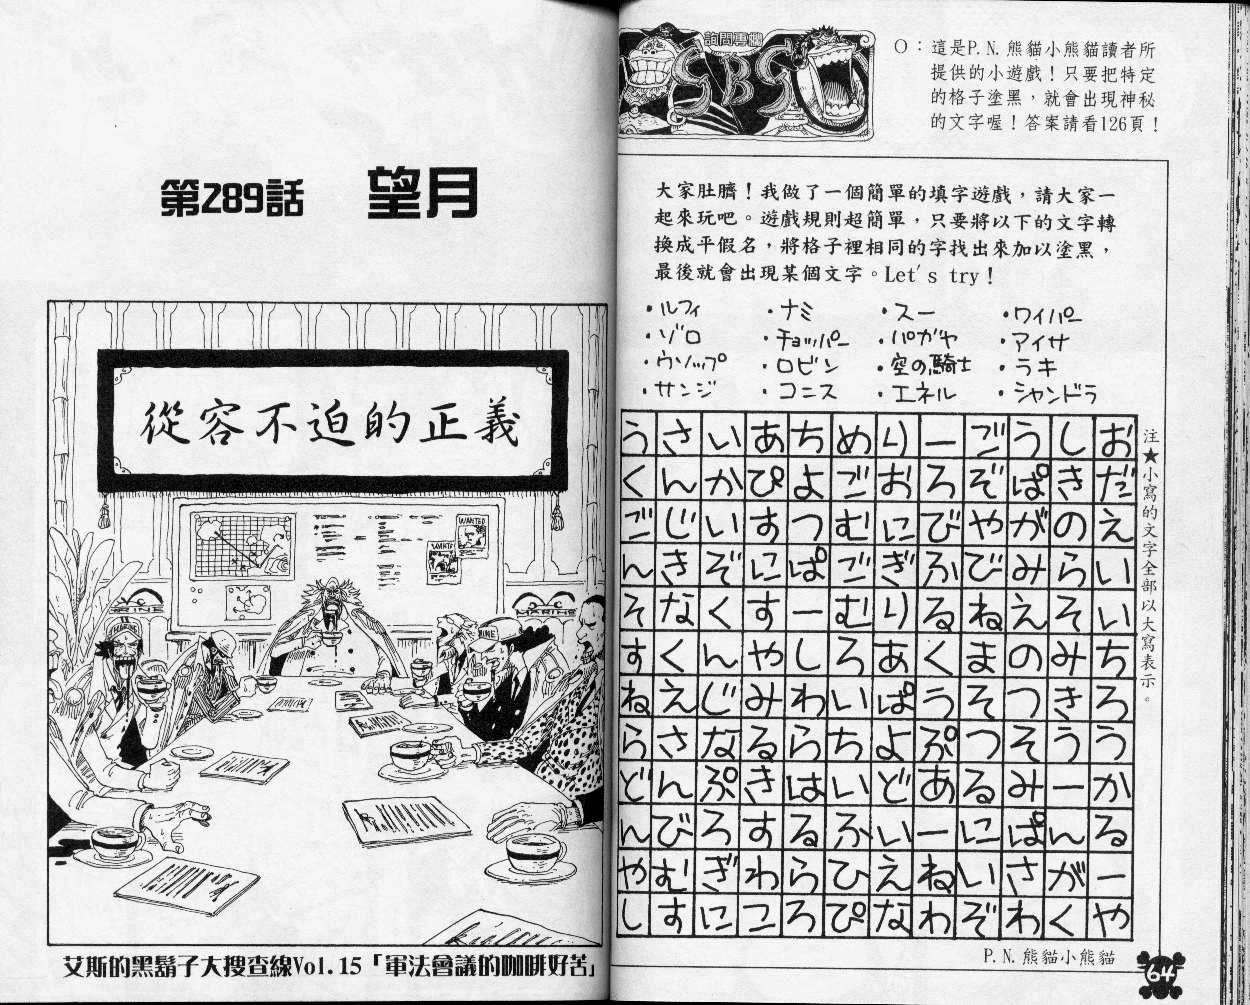 第289話 望月
從容不迫的正義
WANTED
WANTED
MARINE
艾斯的黑鬍子大搜查線Vol.15「軍法會議的咖啡好苦」
詢問專欄
SBS
O：這是P.N.熊貓小熊貓讀者所
提供的小遊戲！只要把特定
的格子塗黑，就會出現神秘
的文字喔！答案請看126頁！
大家肚臍！我做了一個簡單的填字遊戲，請大家一
起來玩吧。遊戲規則超簡單，只要將以下的文字轉
換成平假名，將格子裡相同的字找出來加以塗黑，
最後就會出現某個文字。Let's try！
・ルフィ ・ナミ ・スー ・ワイパー
・ゾロ ・チョッパー ・パガヤ ・アイサ
・ウソップ ・ロビン ・空の騎士 ・ラキ
・サンジ ・コニス ・エネル ・シャンドラ
うさいあちめりーごうしお
くんかぴよごおろぞぱきだ
ごじいすつむにびやがのえ
んきぞにぱごぎふびみらい
そなくすーむりるねえそい
すくんやしろあくまのみち
ねえじみわいぱうそつきろ
らさなるらちよぷつそうう
どんぷきはいどあるみーか
んびろするふいーにぱんる
やむぎわらひえねいさがー
しすにころぴなわぞわくや
注★小寫的文字全部以大寫表示。
P.N.熊貓小熊貓
64